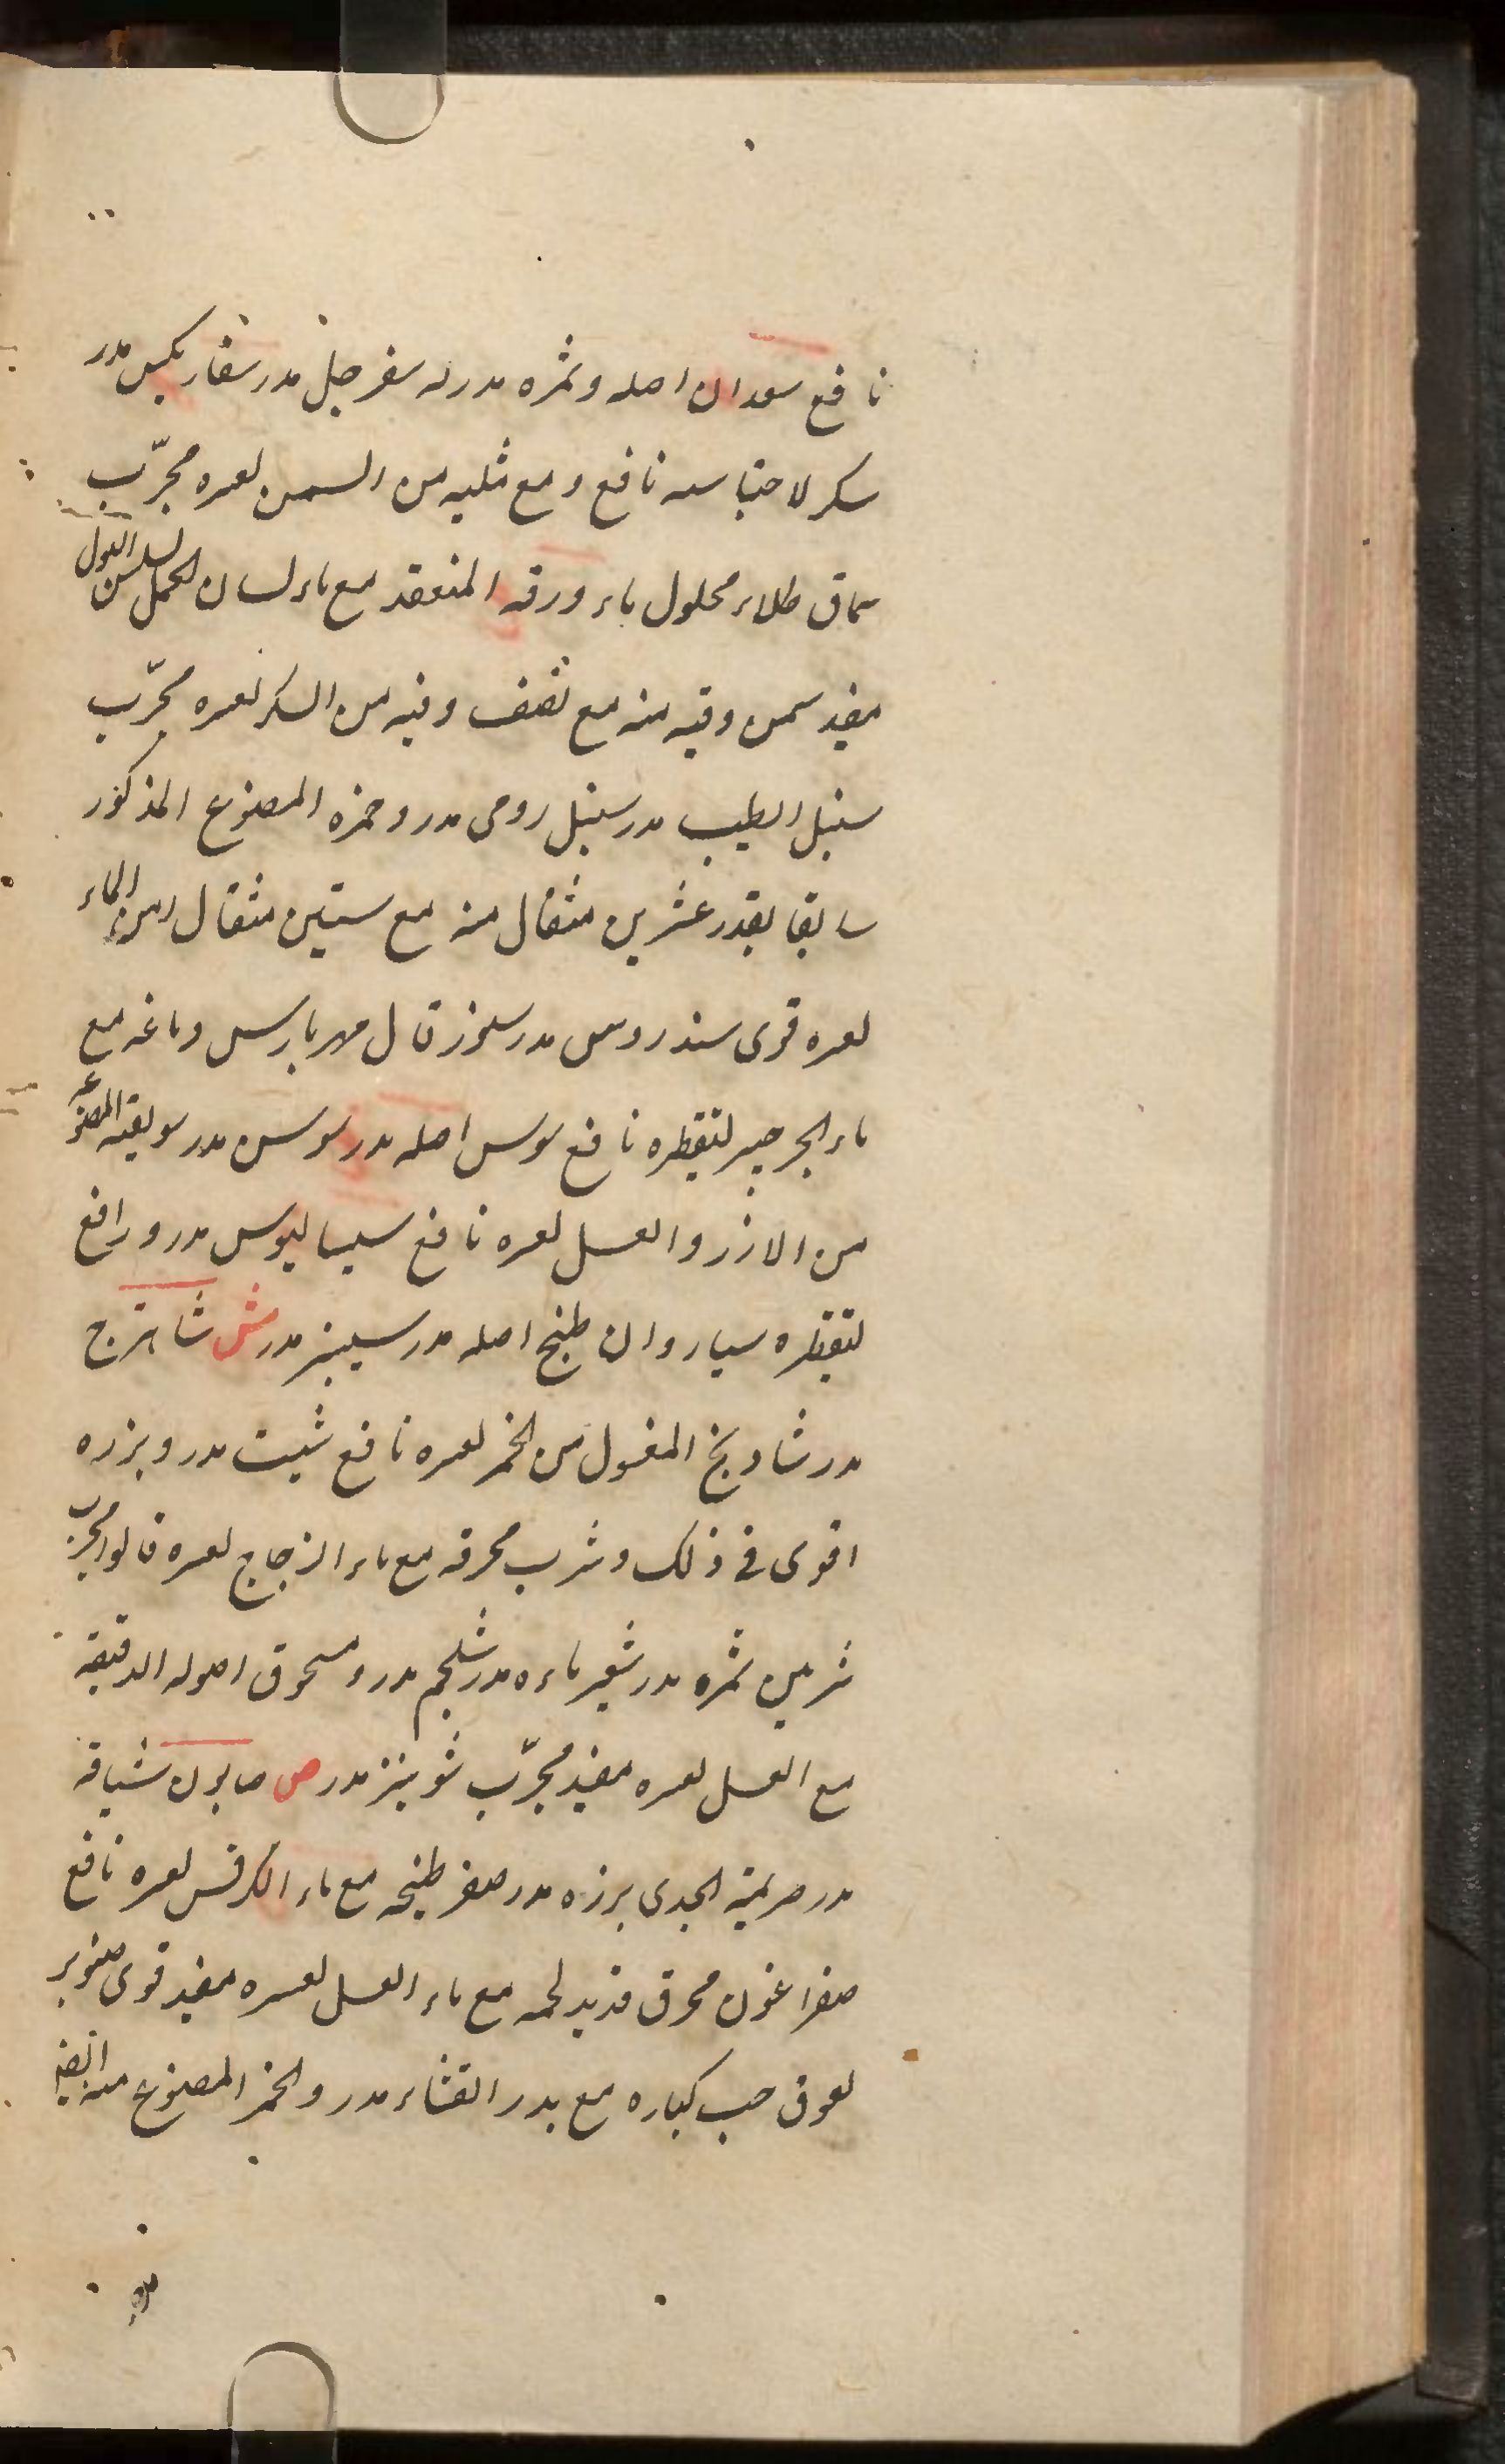 نافع سعدان اصله وثمره مدر له سفرجل مدر سفاريكس مدر
سكر لاحتباسه نافع ومع مثليه من السمن لعسره مجرّب
سماق طلاء محلول ماء ورقه المنعقد مع ماء لسان الحمل لسلس البول
مفيد سمن وقيه منه مع نصف وقيه من السكر لعسره مجرّب
سنبل الطيب مدر سنبل رومى مدر وخمره المصنوع المذكور
سابقا بقدر عشرين مثقال منه مع ستين مثقال من الماء
لعسره قوى سندروس مدر قال مهربارس دماغه مع
ماء الجرجير لتقطيره نافع سوس اصله مدر سوسن مدر سويقة المصنوعة
من الارز والعسل لعسره نافع سيساليوس مدر ورافع
لتقطيره سياروان طبخ اصله مدر سيسنبر مدر ش شاهترج
مدر شادنج المغسول من الخمر لعسره نافع شبت مدر وبزره
اقوى فى ذلك وشرب محرقه مع ماء الزجاج لعسره قالوا مجرب
شربين ثمره مدر شعير ماءه مدر شلجم مدر ومسحوق اصوله الدقيقة
مع العسل لعسره مفيد مجرّب شونيز مدر ص صابون شيافه
مدر صريمة الجدى بزره مدر صعتر طبيخه مع ماء الكرفس لعسره نافع
صفراغون محرق قديد لحمه مع ماء العسل لعسره مفيد قوى صنوبر
لعوق حب كباره مع بذر القثاء مدر والخمر المصنوع منه ايضا